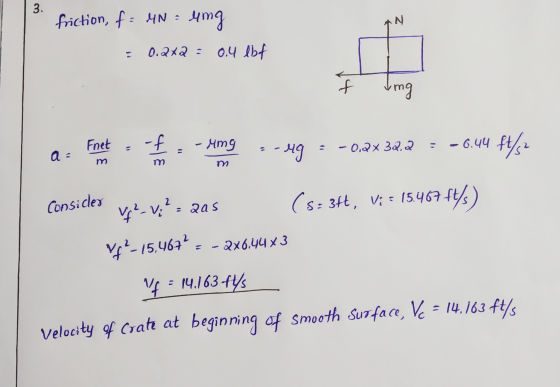 3.
friction, f = μN = μmg
= 0.2×2 = 0.4 lbf
N
f
mg
a = Fnet/m = -f/m = -μmg/m = -μg = -0.2×32.2 = -6.44 ft/s²
Consider Vf² - Vi² = 2as (s = 3ft, Vi = 15.467 ft/s)
Vf² - 15.467² = -2×6.44×3
Vf = 14.163 ft/s
Velocity of Crate at beginning of smooth surface, Vc = 14.163 ft/s